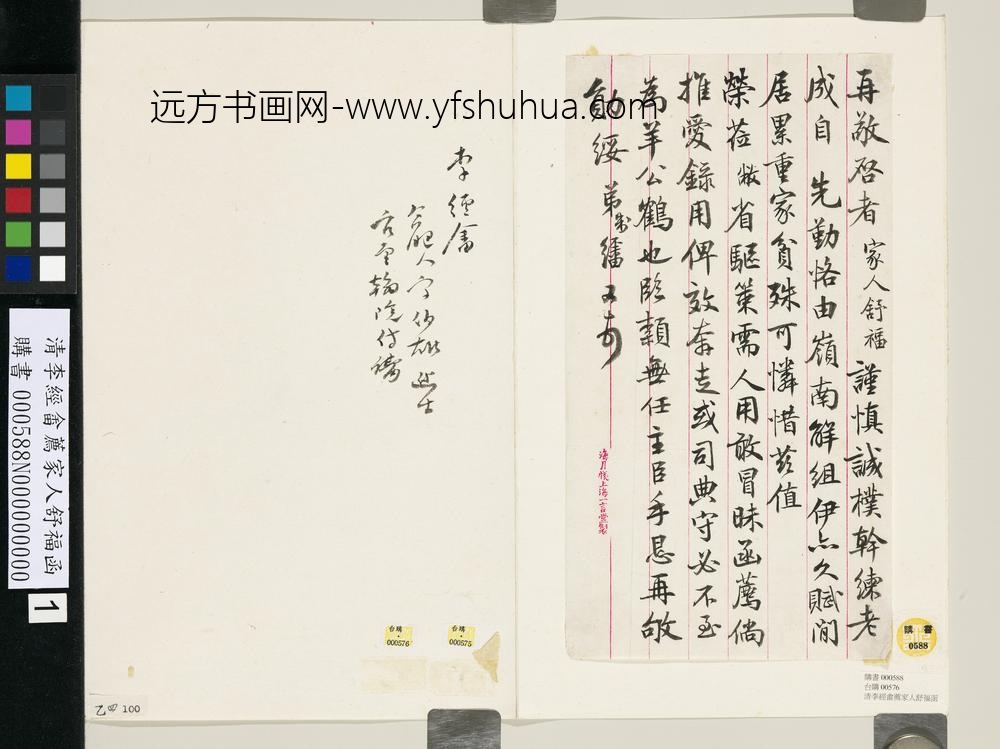 远方书画网-www.yfshuhua.com
再敬啓者家人舒福謹慎誠樸幹練老
成自先勤恪由嶺南解組伊亦久賦閒
居累重家貧殊可憐惜茲值
榮蒞敝省驅策需人用敢冒昧函薦倘
推愛錄用俾效奔走或司典守必不至
為羊公鶴也臨穎無任主臣手恳再敂
勛綏弟
海月牋上海一言堂製
李經畬
合肥人字
清李經畬薦家人舒福函
購書 000588N000000000
1
台購
000576
台購
000575
購書
0588
購書 000588
台購 00576
清李經畬薦家人舒福函
乙 100